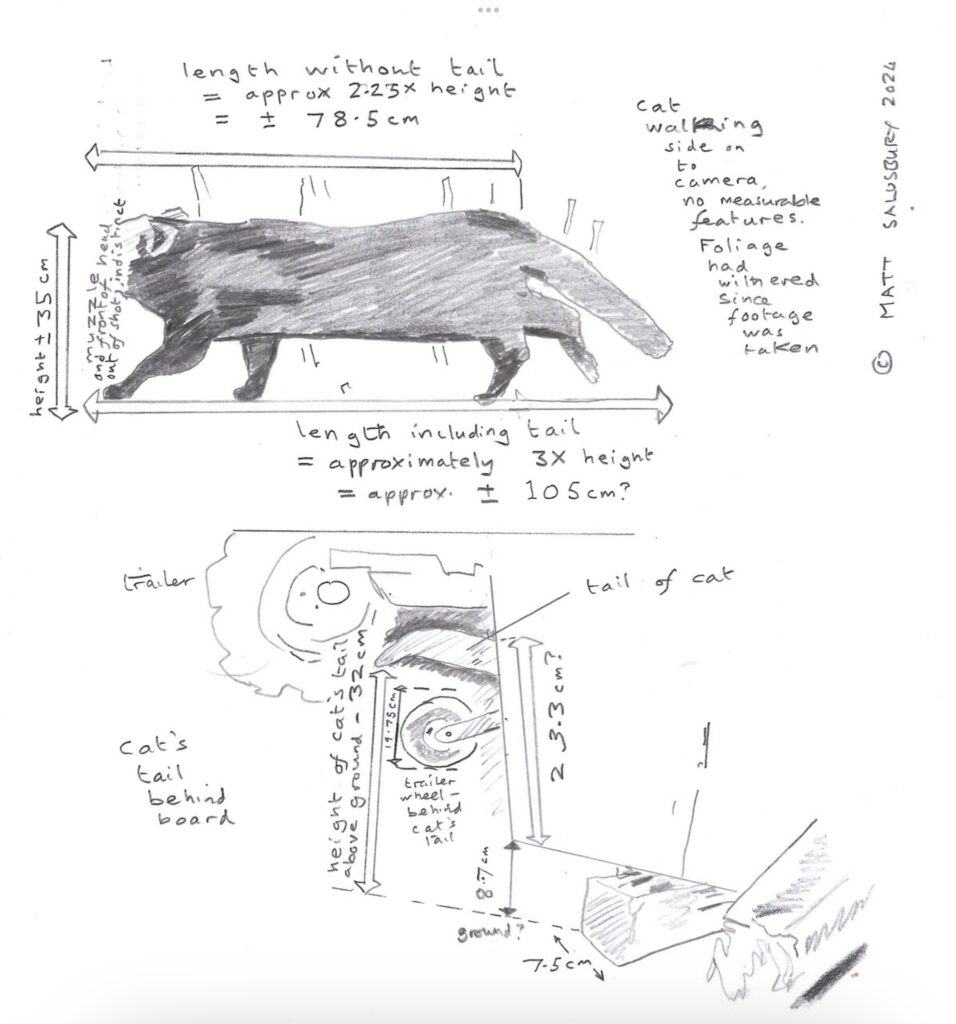 length without tail
= approx 2.25x height
= ± 78.5cm
cat
walking
side on
to
camera,
no measurable
features.
Foliage
had
withered
since
footage
was
taken
© MATT SALUSBURY 2024
height ± 35cm
muzzle
and front of head
out of shot, indistinct
length including tail
= approximately 3X height
= approx. ± 105cm?
trailer
tail of cat
height of cat's tail
above ground - 32cm
19.75cm
2 3.3cm?
trailer
wheel -
behind
cat's
tail
cat's
tail
behind
board
8.7cm
ground?
7.5cm